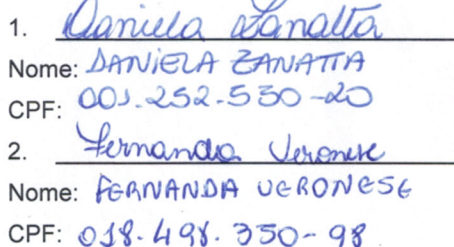 1. Daniela Zanatta
Nome: DANIELA ZANATTA
CPF: 001.252.530-20
2. Fernanda Veronese
Nome: FERNANDA VERONESE
CPF: 018.498.350-98